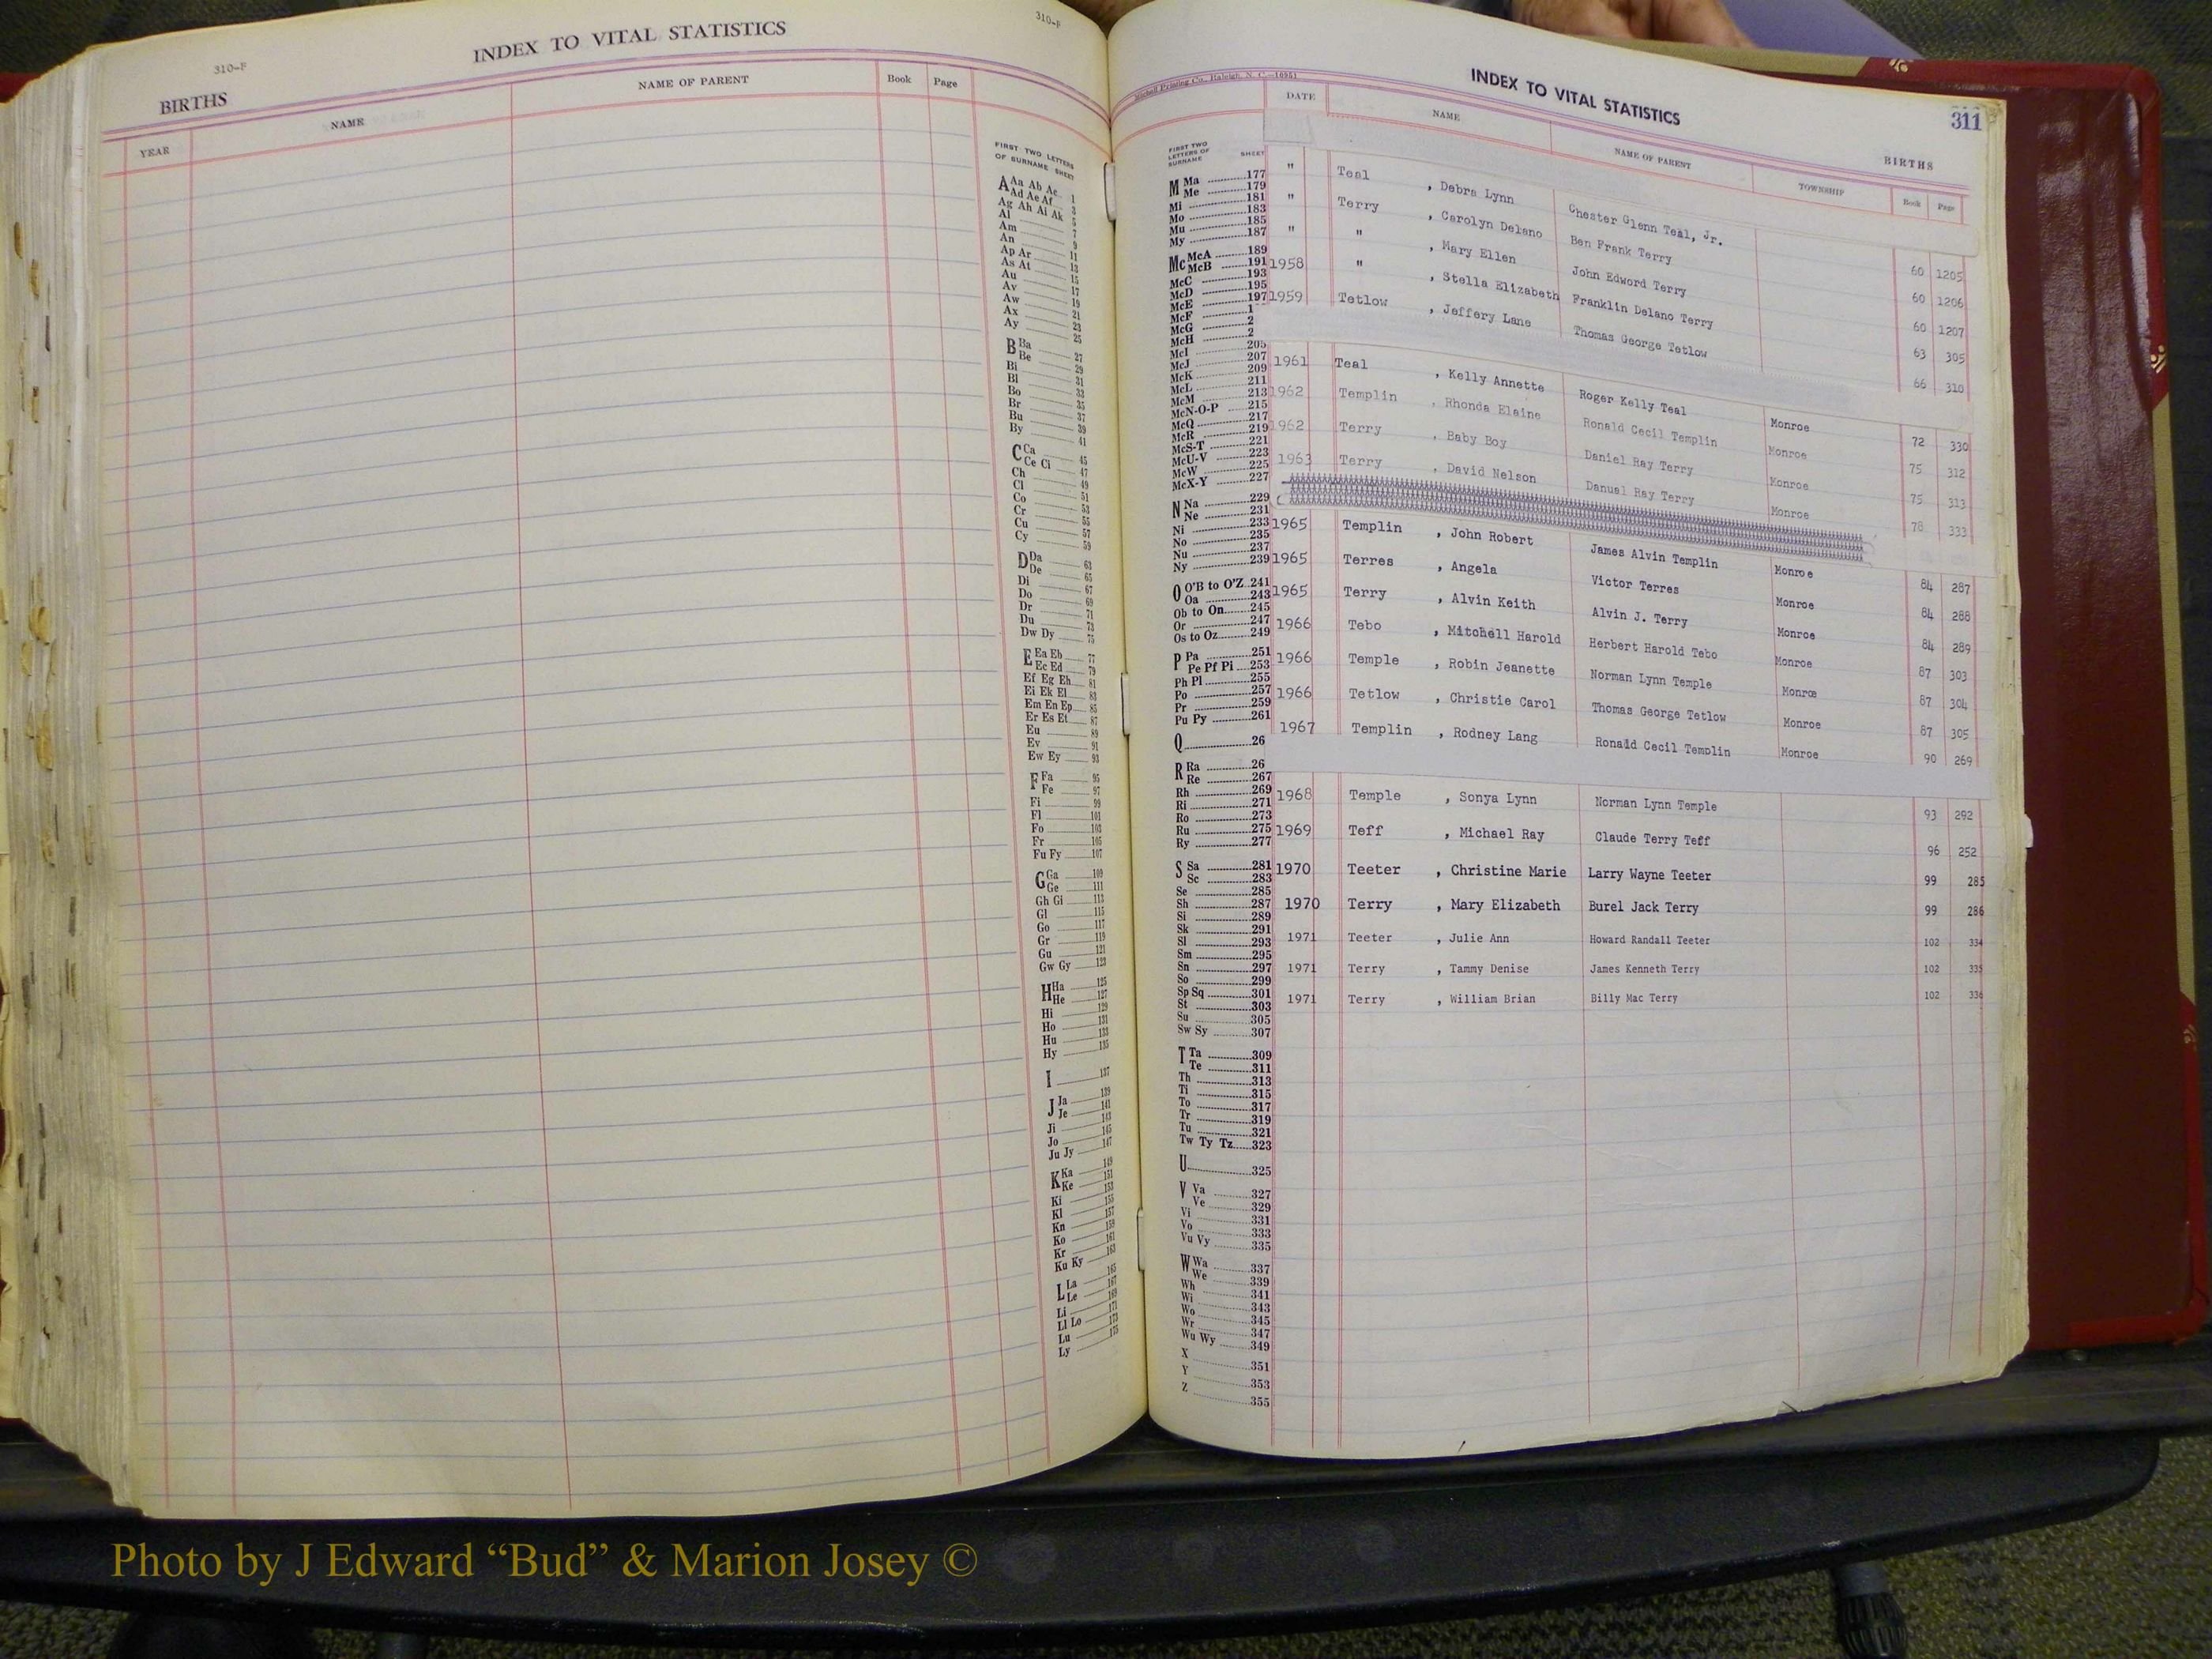 310-F
INDEX TO VITAL STATISTICS
310-F
BIRTHS
YEAR NAME NAME OF PARENT Book Page
FIRST TWO LETTERS
OF SURNAME SHEET
A Aa Ab Ac 1
Ad Ae Af 3
Ag Ah Ai Ak 5
Al 7
Am 9
An 11
Ap Ar 13
As At 15
Au 17
Av 19
Aw 21
Ax 23
Ay 25
B Ba 27
Be 29
Bi 31
Bl 33
Bo 35
Br 37
Bu 39
By 41
C Ca 45
Ce Ci 47
Ch 49
Cl 51
Co 53
Cr 55
Cu 57
Cy 59
D Da 63
De 65
Di 67
Do 69
Dr 71
Du 73
Dw Dy 75
E Ea Eb 77
Ec Ed 79
Ef Eg Eh 81
Ei Ek El 83
Em En Ep 85
Er Es Et 87
Eu 89
Ev 91
Ew Ey 93
F Fa 95
Fe 97
Fi 99
Fl 101
Fo 103
Fr 105
Fu Fy 107
G Ga 109
Ge 111
Gh Gi 113
Gl 115
Go 117
Gr 119
Gu 121
Gw Gy 123
H Ha 125
He 127
Hi 129
Ho 131
Hu 133
Hy 135
I 137
J Ja 139
Je 141
Ji 143
Jo 145
Ju Jy 147
K Ka 149
Ke 151
Ki 153
Kl 155
Kn 157
Ko 159
Kr 161
Ku Ky 163
L La 165
Le 167
Li 169
Ll Lo 171
Lu 173
Ly 175
Mitchell Printing Co., Raleigh, N. C.
INDEX TO VITAL STATISTICS
311
BIRTHS
DATE NAME NAME OF PARENT TOWNSHIP Book Page
FIRST TWO
LETTERS OF
SURNAME SHEET
M Ma 177
Me 179
Mi 181
Mo 183
Mu 185
My 187
Mc McA 189
McB 191
McC 193
McD 195
McE 197
McF 1
McG 2
McH 2
McI 205
McJ 207
McK 209
McL 211
McM 213
McN-O-P 215
McQ 217
McR 219
McS-T 221
McU-V 223
McW 225
McX-Y 227
N Na 229
Ne 231
Ni 233
No 235
Nu 237
Ny 239
O O'B to O'Z 241
Oa 243
Ob to On 245
Or 247
Os to Oz 249
P Pa 251
Pe Pf Pi 253
Ph Pl 255
Po 257
Pr 259
Pu Py 261
Q 26
R Ra 26
Re 267
Rh 269
Ri 271
Ro 273
Ru 275
Ry 277
S Sa 281
Sc 283
Se 285
Sh 287
Si 289
Sk 291
Sl 293
Sm 295
Sn 297
So 299
Sp Sq 301
St 303
Su 305
Sw Sy 307
T Ta 309
Te 311
Th 313
Ti 315
To 317
Tr 319
Tu 321
Tw Ty Tz 323
U 325
V Va 327
Ve 329
Vi 331
Vo 333
Vu Vy 335
W Wa 337
We 339
Wh 341
Wi 343
Wo 345
Wr 347
Wu Wy 349
X 351
Y 353
Z 355
" Teal , Debra Lynn Chester Glenn Teal, Jr. 60 1205
" Terry , Carolyn Delano Ben Frank Terry 60 1206
" " , Mary Ellen John Edword Terry 60 1207
1958 " , Stella Elizabeth Franklin Delano Terry 63 305
1959 Tetlow , Jeffery Lane Thomas George Tetlow 66 310
1961 Teal , Kelly Annette Roger Kelly Teal Monroe 72 330
1962 Templin , Rhonda Elaine Ronald Cecil Templin Monroe 75 312
1962 Terry , Baby Boy Daniel Ray Terry Monroe 75 313
1963 Terry , David Nelson Danual Ray Terry Monroe 78 333
1965 Templin , John Robert James Alvin Templin Monroe 84 287
1965 Terres , Angela Victor Terres Monroe 84 288
1965 Terry , Alvin Keith Alvin J. Terry Monroe 84 289
1966 Tebo , Mitchell Harold Herbert Harold Tebo Monroe 87 303
1966 Temple , Robin Jeanette Norman Lynn Temple Monroe 87 304
1966 Tetlow , Christie Carol Thomas George Tetlow Monroe 87 305
1967 Templin , Rodney Lang Ronald Cecil Templin Monroe 90 269
1968 Temple , Sonya Lynn Norman Lynn Temple 93 292
1969 Teff , Michael Ray Claude Terry Teff 96 252
1970 Teeter , Christine Marie Larry Wayne Teeter 99 285
1970 Terry , Mary Elizabeth Burel Jack Terry 99 286
1971 Teeter , Julie Ann Howard Randall Teeter 102 334
1971 Terry , Tammy Denise James Kenneth Terry 102 335
1971 Terry , William Brian Billy Mac Terry 102 336
Photo by J Edward “Bud” & Marion Josey ©